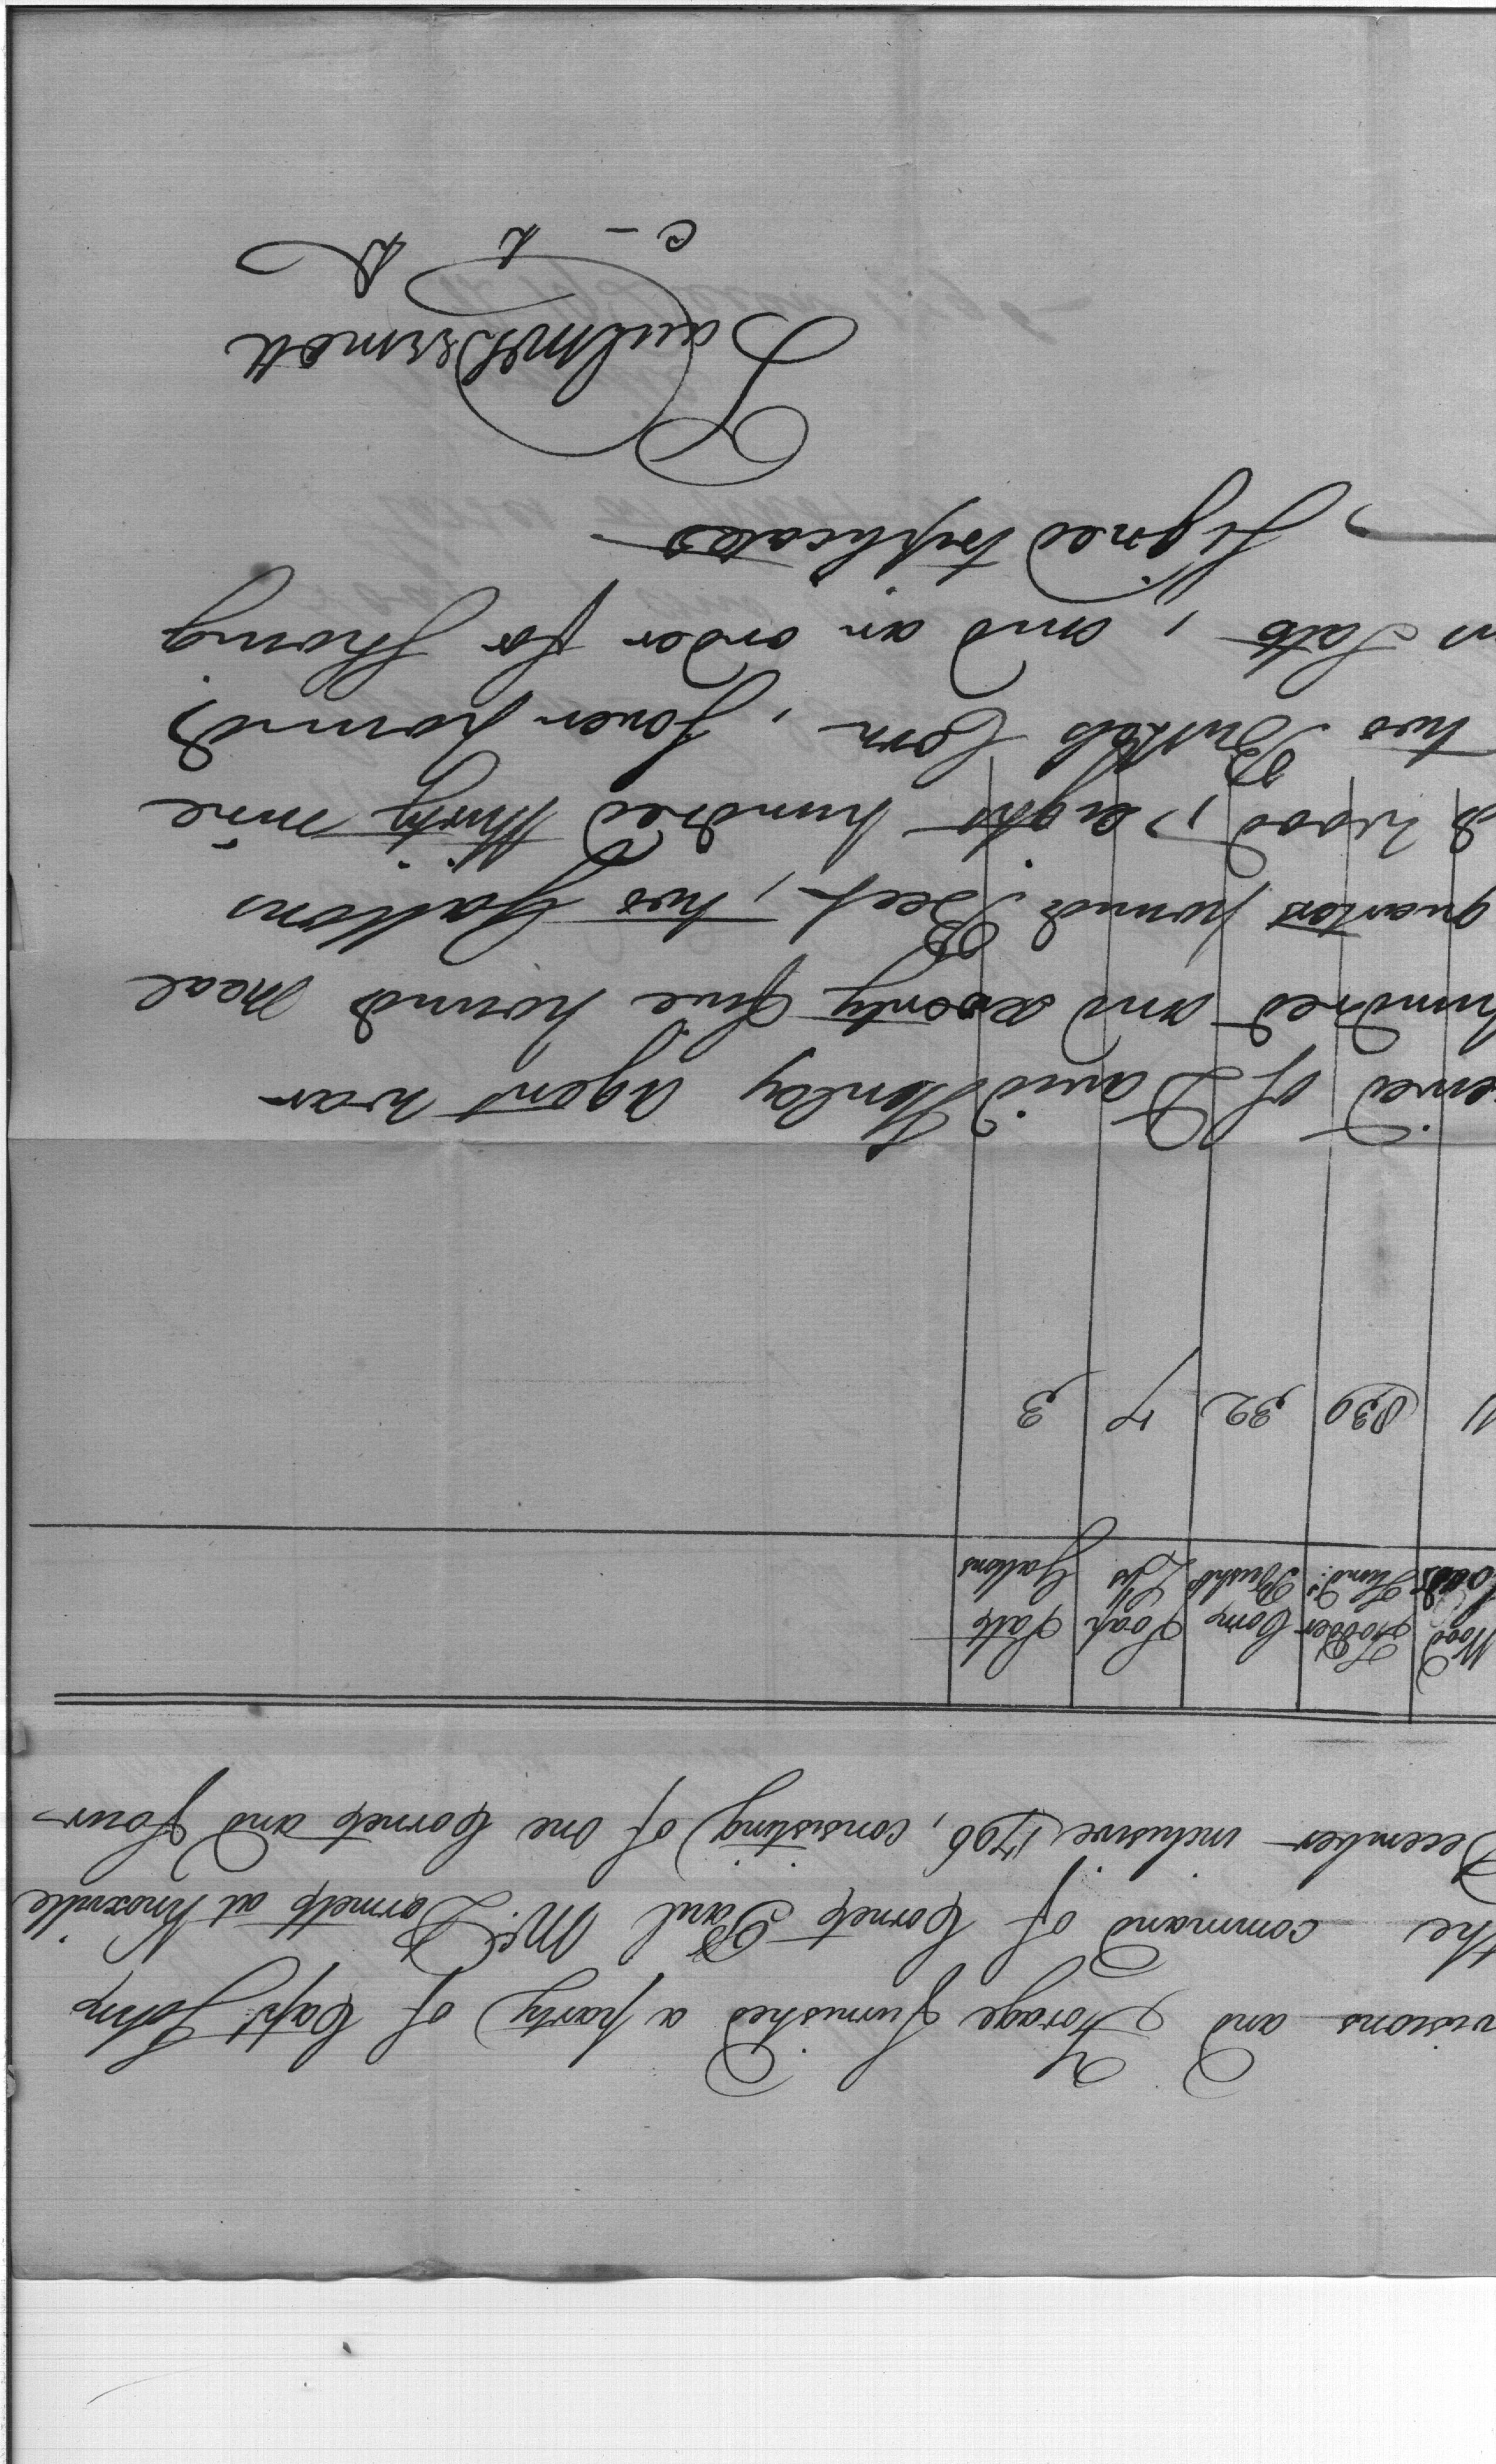 visions and Forage furnished a party of Capt. John
the command of Cornet Paul McDermott at Knoxville
December inclusive 1796, consisting of one Cornet and four
Wood Fodder Corn Soap Salt
Loads Hund.s Bushls Lbs Gallons
11 839 32 4 3
eived of David Henley agent war
hundred and seventy five pounds meal
quarters pounds Beef, two Gallons
wood, eight hundred thirty nine
two Bushels Corn, four pounds
Salt, and an order for
Signed triplicates
Paul McDermott